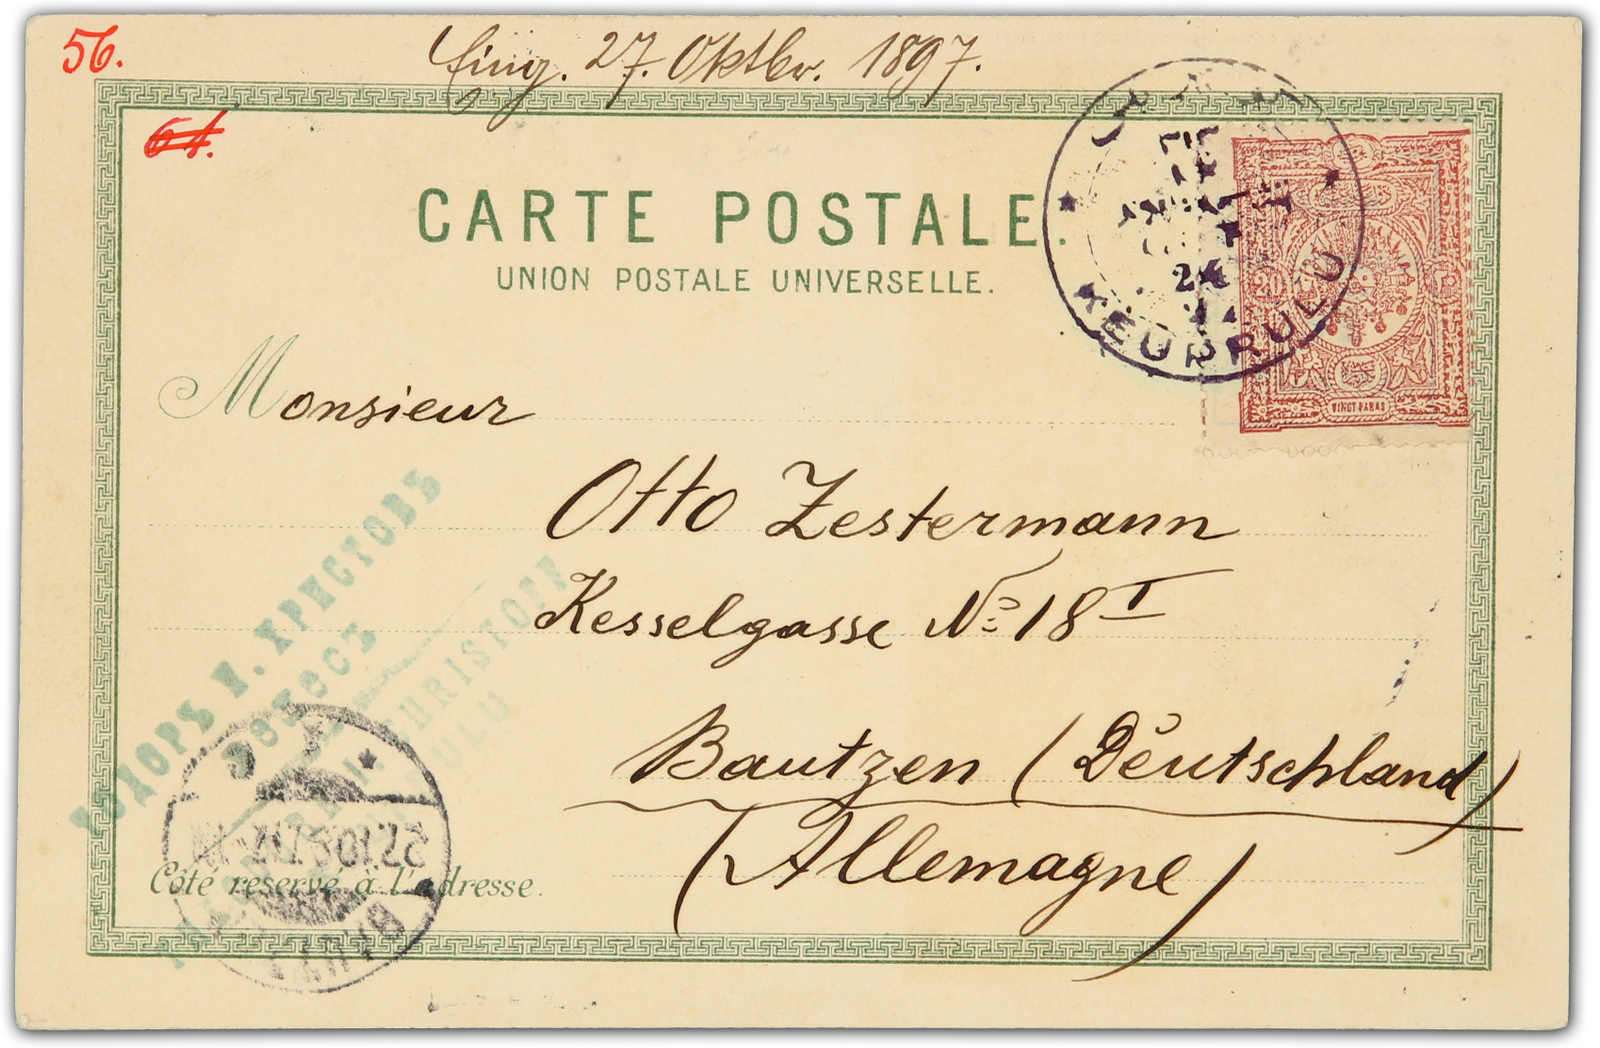 56.
Eing. 27. Oktbr. 1897.
64.
CARTE POSTALE.
UNION POSTALE UNIVERSELLE.
24
KEUPRULU
20
VINGT PARAS
Monsieur
Otto Zestermann
Kesselgasse No 18 I
Bautzen (Deutschland)
(Allemagne)
ХРИСТОВЪ
Côté reservé à l'adresse.